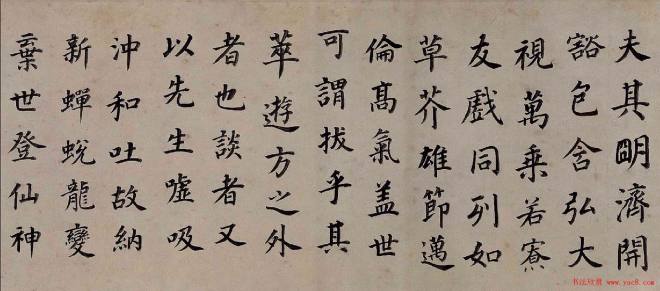 夫其明濟開
豁包含弘大
視萬乗若寮
友戲同列如
草芥雄節邁
倫髙氣盖世
可謂拔乎其
萃遊方之外
者也談者又
以先生嘘吸
沖和吐故納
新蟬蛻龍變
棄世登仙神
书法欣赏 www.yac8.com